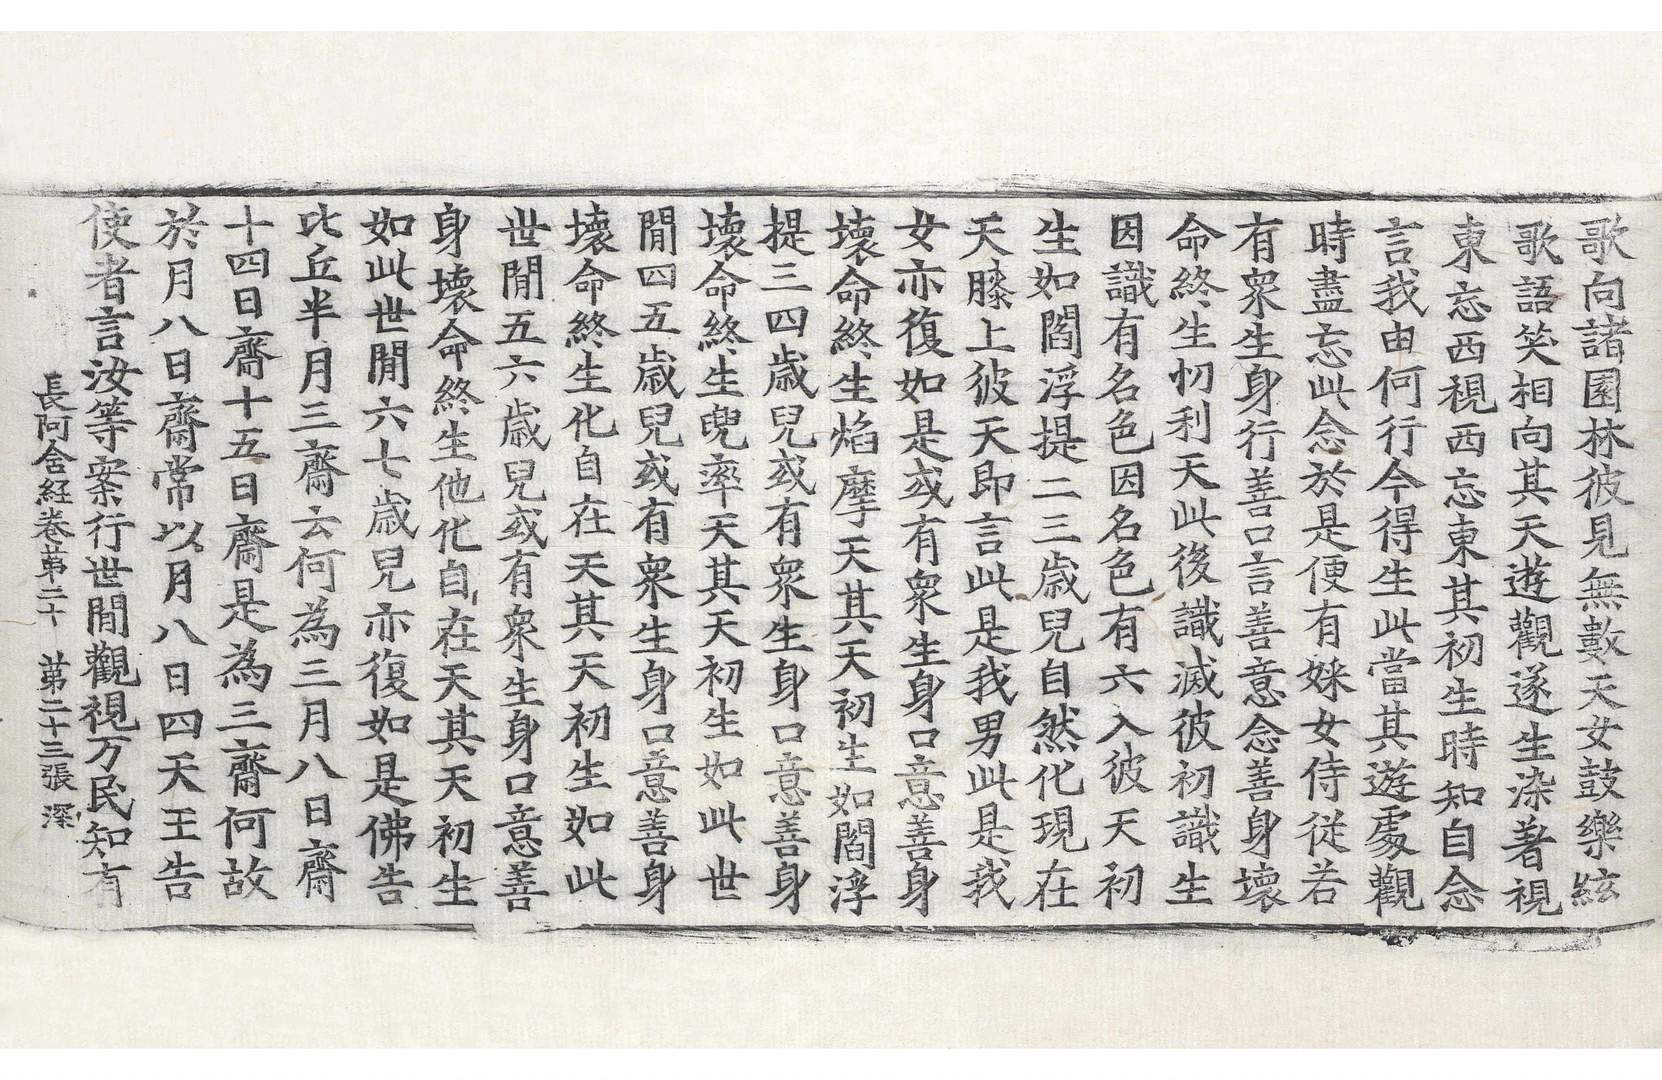 歌向諸園林彼見無數天女鼓樂絃
歌語笑相向其天遊觀遂生染著視
東忘西視西忘東其初生時知自念
言我由何行今得生此當其遊處觀
時盡忘此念於是便有婇女侍從若
有衆生身行善口言善意念善身壞
命終生忉利天此後識滅彼初識生
因識有名色因名色有六入彼天初
生如閻浮提二三歲兒自然化現在
天膝上彼天即言此是我男此是我
女亦復如是或有衆生身口意善身
壞命終生焰摩天其天初生如閻浮
提三四歲兒或有衆生身口意善身
壞命終生兜率天其天初生如此世
閒四五歲兒或有衆生身口意善身
壞命終生化自在天其天初生如此
世閒五六歲兒或有衆生身口意善
身壞命終生他化自在天其天初生
如此世閒六七歲兒亦復如是佛告
比丘半月三齋云何為三月八日齋
十四日齋十五日齋是為三齋何故
於月八日齋常以月八日四天王告
使者言汝等案行世閒觀視万民知有
長阿含經卷第二十 第二十三張 深